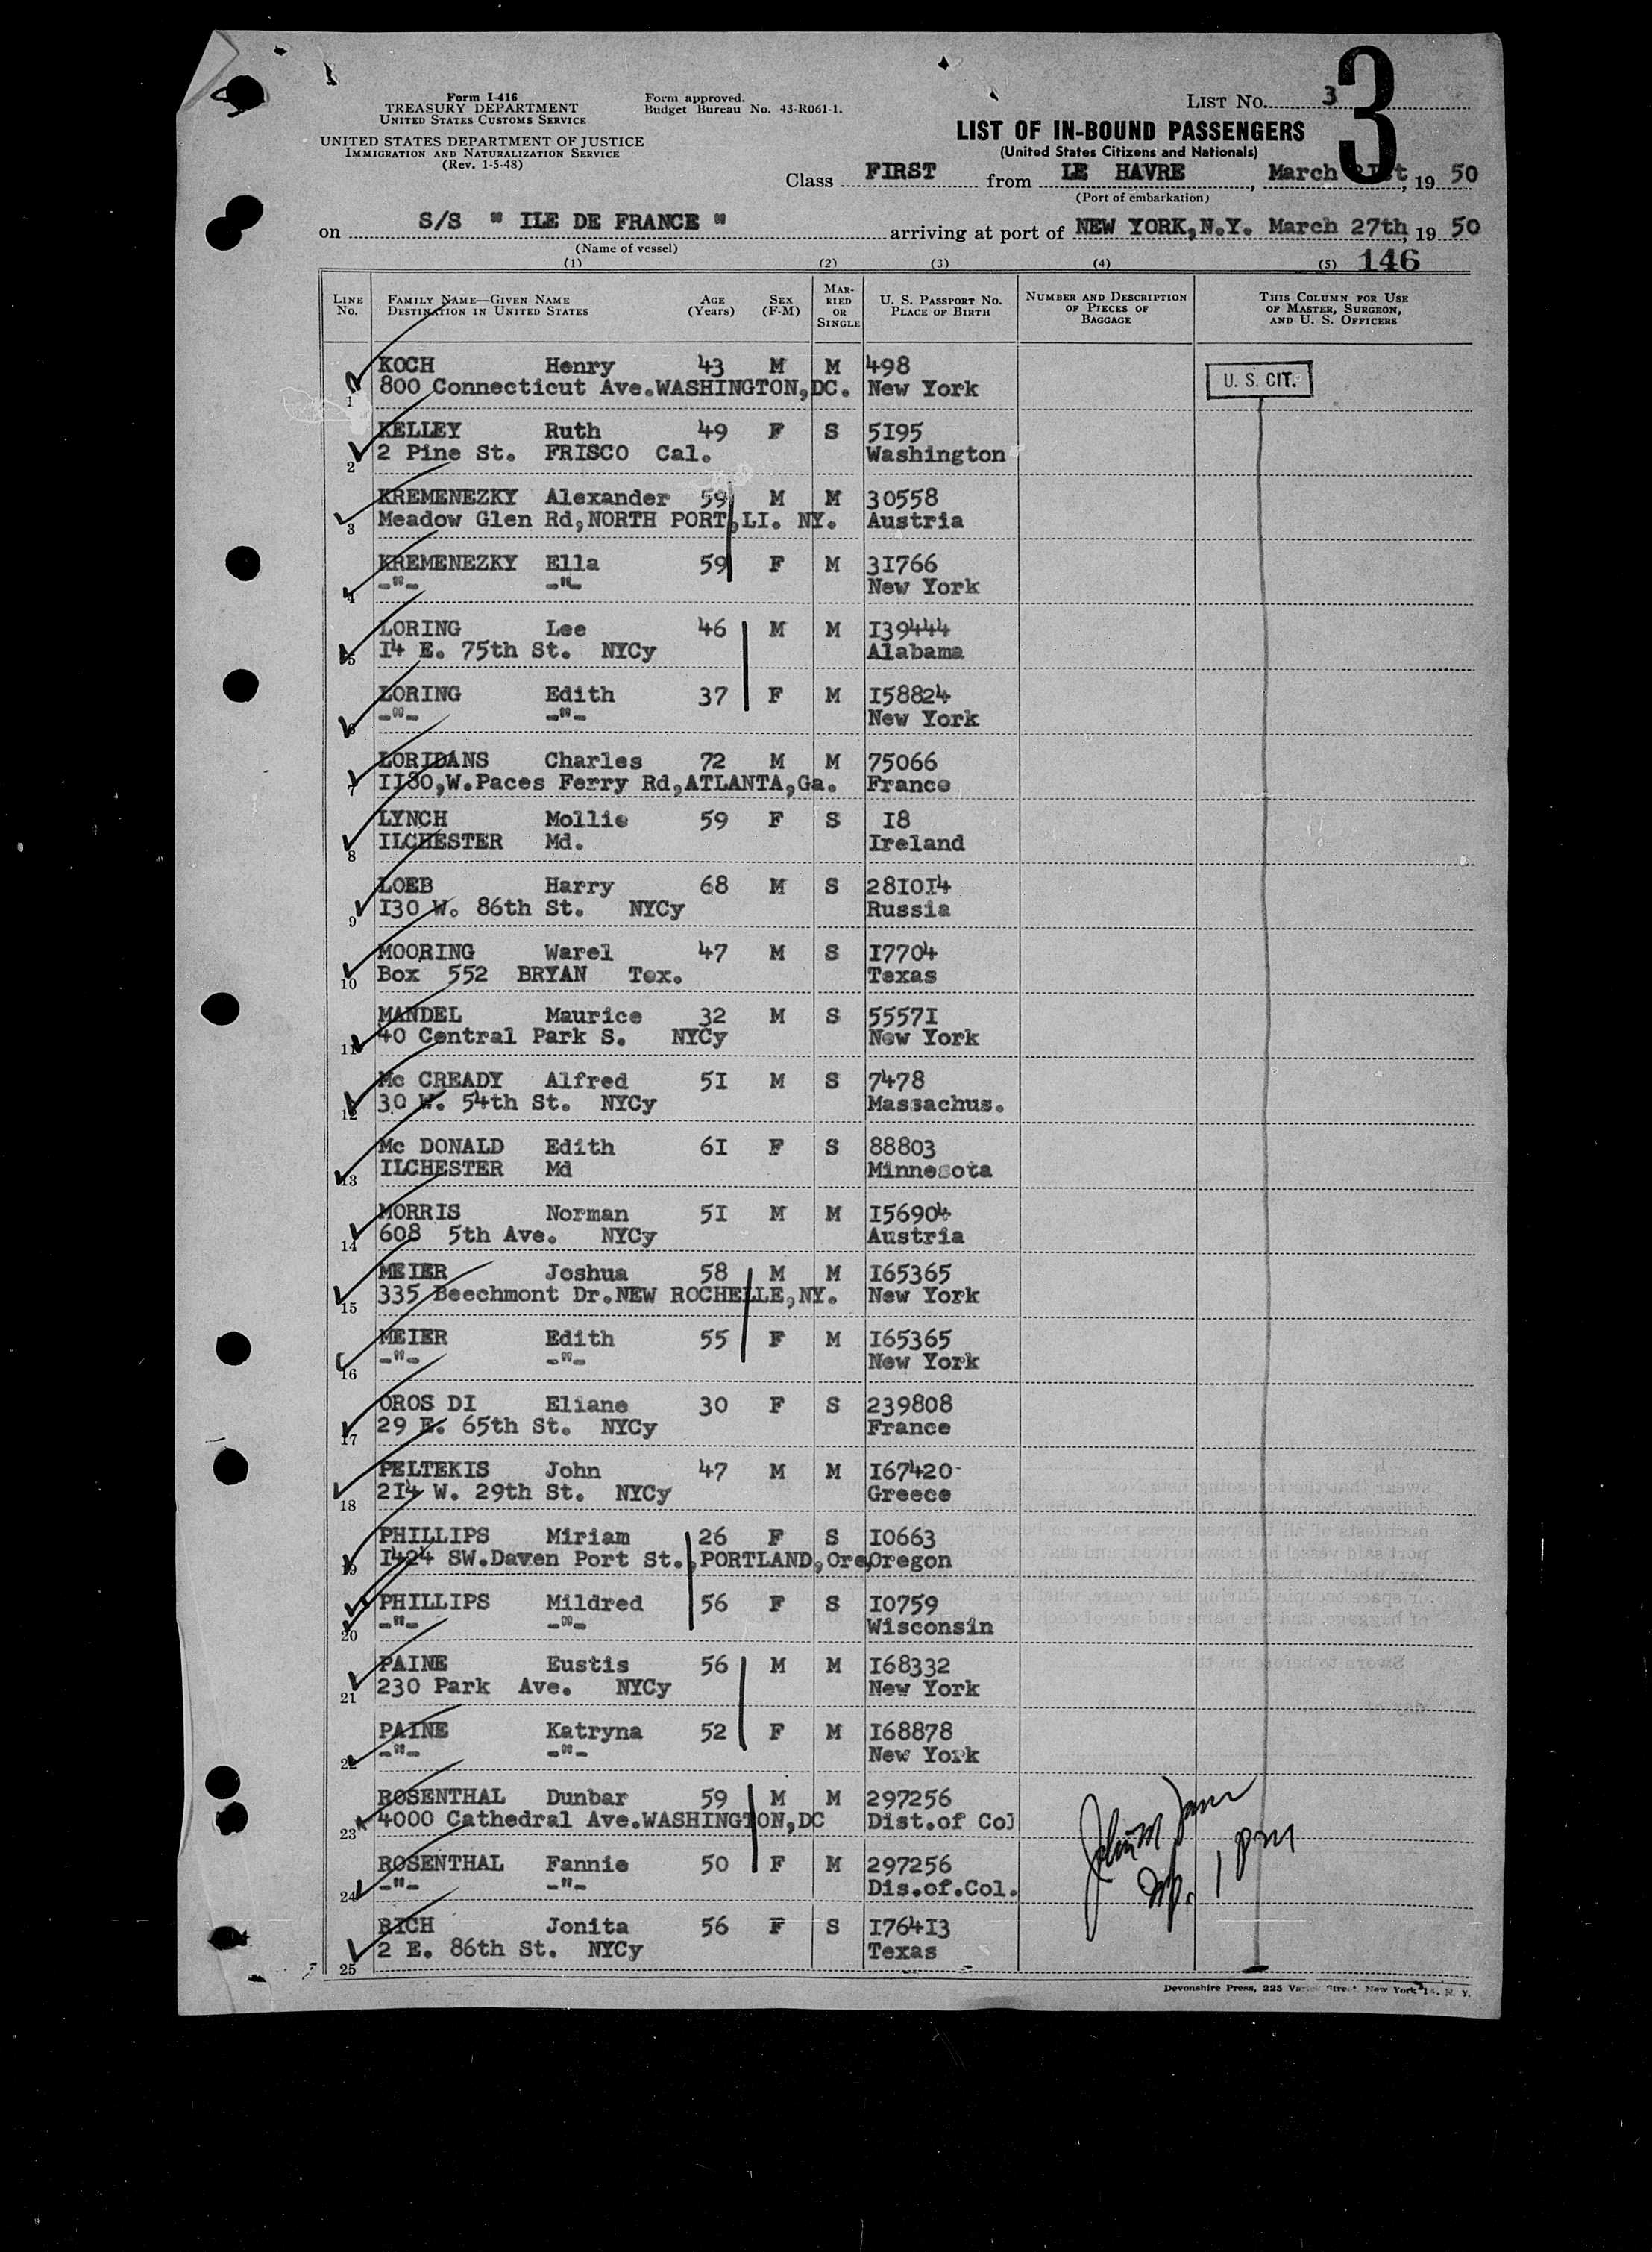 Form I-416
TREASURY DEPARTMENT
UNITED STATES CUSTOMS SERVICE
UNITED STATES DEPARTMENT OF JUSTICE
IMMIGRATION AND NATURALIZATION SERVICE
(Rev. 1-5-48)
Form approved.
Budget Bureau No. 43-R061-1.
LIST NO. 3
3
LIST OF IN-BOUND PASSENGERS
(United States Citizens and Nationals)
Class FIRST from LE HAVRE, March 2Ist, 19 50
(Port of embarkation)
on S/S " ILE DE FRANCE " arriving at port of NEW YORK,N.Y. March 27th, 19 50
(Name of vessel)
(1) (2) (3) (4) (5) 146
LINE No. FAMILY NAME—GIVEN NAME DESTINATION IN UNITED STATES AGE (Years) SEX (F-M) MARRIED OR SINGLE U. S. PASSPORT NO. PLACE OF BIRTH NUMBER AND DESCRIPTION OF PIECES OF BAGGAGE THIS COLUMN FOR USE OF MASTER, SURGEON, AND U. S. OFFICERS
KOCH Henry 43 M M 498 U. S. CIT.
1 800 Connecticut Ave.WASHINGTON,DC. New York
KELLEY Ruth 49 F S 5I95
2 2 Pine St. FRISCO Cal. Washington
KREMENEZKY Alexander 59 M M 30558
3 Meadow Glen Rd,NORTH PORT,LI. NY. Austria
KREMENEZKY Ella 59 F M 3I766
4 -"- -"- New York
LORING Lee 46 M M I39444
5 I4 E. 75th St. NYCy Alabama
LORING Edith 37 F M I58824
6 -"- -"- New York
LORIDANS Charles 72 M M 75066
7 II80,W.Paces Ferry Rd,ATLANTA,Ga. France
LYNCH Mollie 59 F S I8
8 ILCHESTER Md. Ireland
LOEB Harry 68 M S 28I0I4
9 I30 W. 86th St. NYCy Russia
MOORING Warel 47 M S I7704
10 Box 552 BRYAN Tex. Texas
MANDEL Maurice 32 M S 5557I
11 40 Central Park S. NYCy New York
Mc CREADY Alfred 5I M S 7478
12 30 W. 54th St. NYCy Massachus.
Mc DONALD Edith 6I F S 88803
13 ILCHESTER Md Minnesota
MORRIS Norman 5I M M I56904
14 608 5th Ave. NYCy Austria
MEIER Joshua 58 M M I65365
15 335 Beechmont Dr.NEW ROCHELLE,NY. New York
MEIER Edith 55 F M I65365
16 -"- -"- New York
OROS DI Eliane 30 F S 239808
17 29 E. 65th St. NYCy France
PELTEKIS John 47 M M I67420
18 2I4 W. 29th St. NYCy Greece
PHILLIPS Miriam 26 F S I0663
19 I424 SW.Daven Port St.,PORTLAND,Ore, Oregon
PHILLIPS Mildred 56 F S I0759
20 -"- -"- Wisconsin
PAINE Eustis 56 M M I68332
21 230 Park Ave. NYCy New York
PAINE Katryna 52 F M I68878
22 -"- -"- New York
ROSENTHAL Dunbar 59 M M 297256
23 4000 Cathedral Ave.WASHINGTON,DC Dist.of Col
ROSENTHAL Fannie 50 F M 297256
24 -"- -"- Dis.of.Col.
RICH Jonita 56 F S I764I3
25 2 E. 86th St. NYCy Texas
1 PM
Devonshire Press, 225 Varick Street, New York 14, N. Y.